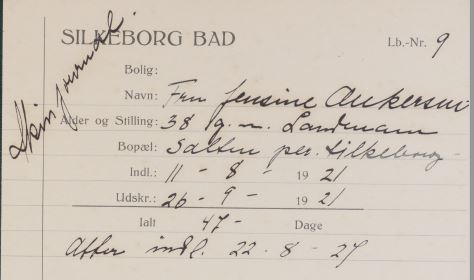 Skinjournal.
SILKEBORG BAD
Lb.-Nr. 9
Bolig:
Navn: Fru Jensine Ankersen
Alder og Stilling: 38 g. m. Landmann
Bopæl: Salten per. Silkeborg
Indl.: 11 - 8 - 1921
Udskr.: 26 - 9 - 1921
Ialt 47 - Dage
Atter indl. 22 - 8 - 27